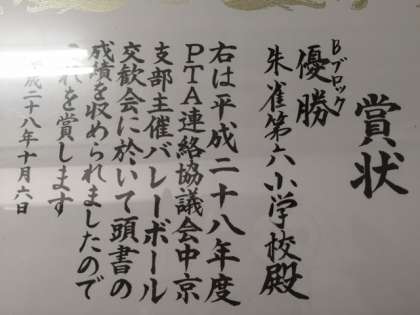 賞状
Bブロック
優勝
朱雀第六小学校殿
右は平成二十八年度
PTA連絡協議会中京
支部主催バレーボール
交歓会に於いて頭書の
成績を収められましたので
これを賞します
平成二十八年十月六日